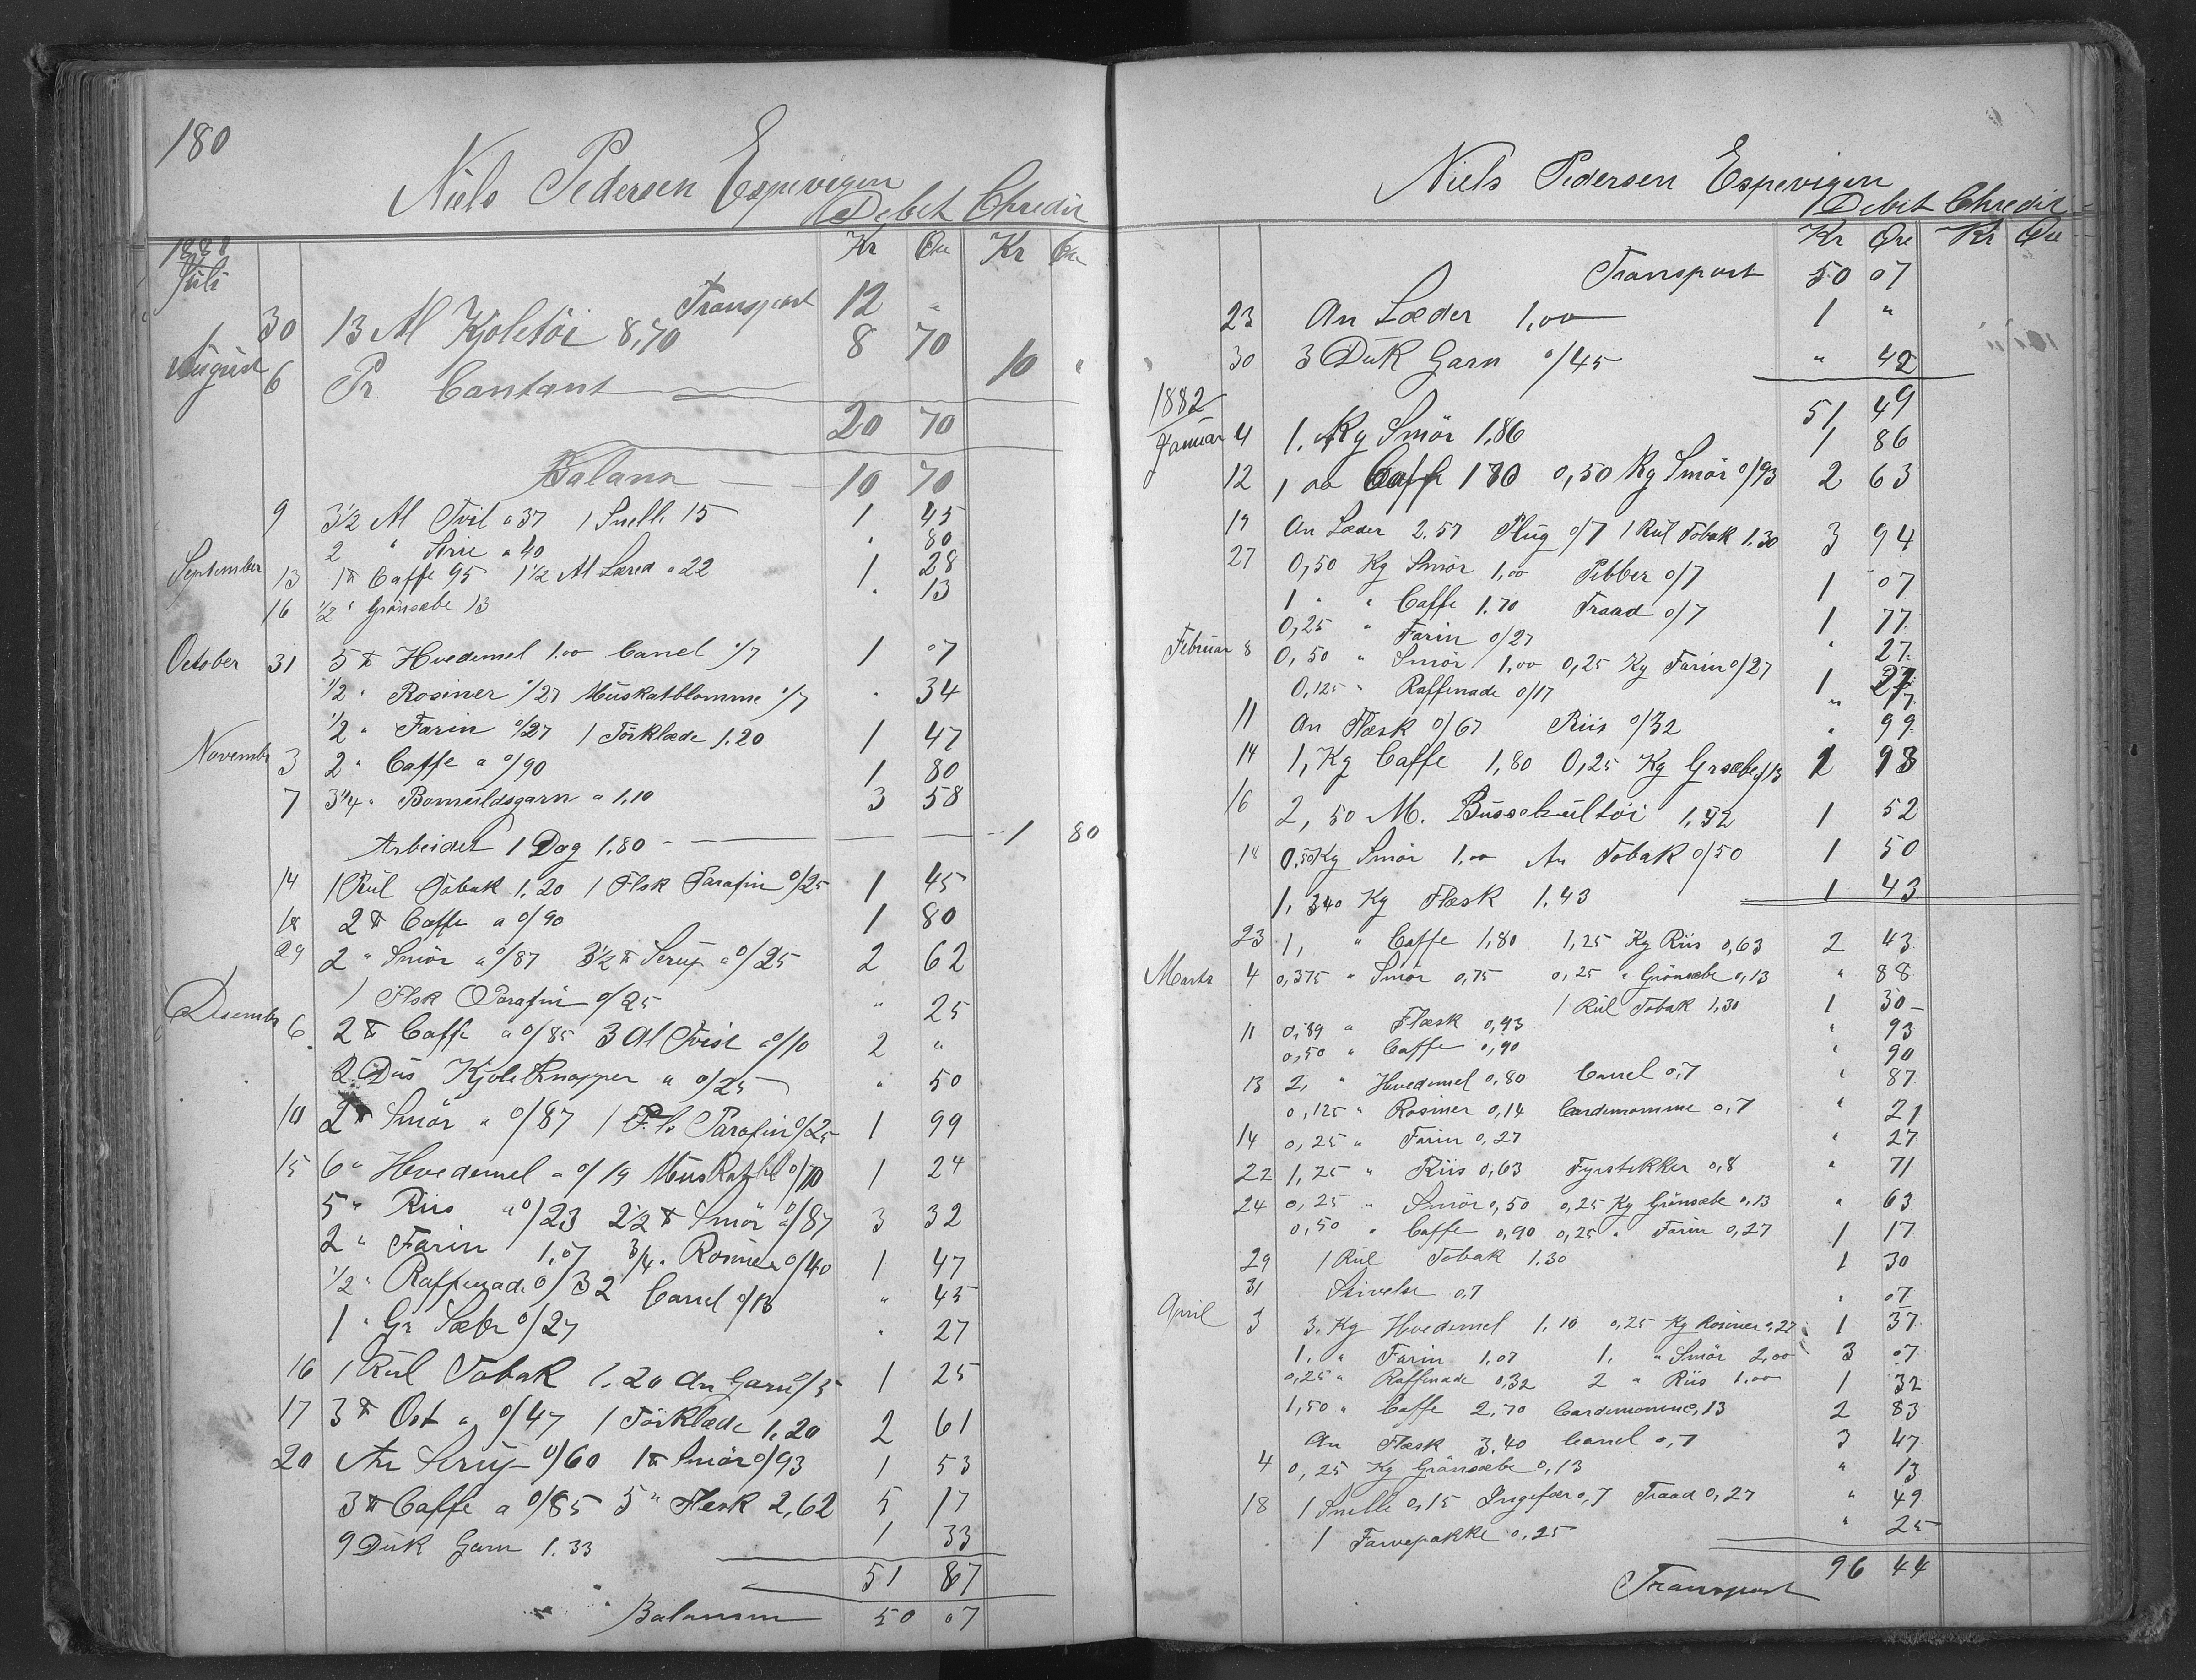 180
Niels Pedersen Espevigen
Debet Chredit
Kr Øre Kr Øre
Juli
Transport 12 "
30 13 Al Kjoletöi 8,70 8 70
August 6 Pr Contant 10 "
20 70
Balanse 10 70
9 3½ Al Tvil a 37 1 Snelle 15 1 45
2 " a 40 " 80
September 13 1 ℔ Caffe 95 1½ Al Læred a 22 1 28
16 ½ " Grönsæbe 13 " 13
October 31 5 ℔ Hvedemel 1.00 Canel o/7 1 07
½ " Rosiner o/27 Muskatblomme o/7 " 34
½ " Farin o/27 1 Törklæde 1.20 1 47
Novembr 3 2 " Caffe a o/90 1 80
7 3¼ " Bomuldsgarn a 1,10 3 58
Arbeidet 1 Dag 1.80 1 80
14 1 Rul Tobak 1.20 1 Flsk Parafin o/25 1 45
18 2 ℔ Caffe a o/90 1 80
29 2 " Smör a o/87 3½ ℔ Sirup a o/25 2 62
1 Flsk Parafin o/25 " 25
Desembr 6 2 ℔ Caffe a o/85 3 Al Tvist a o/10 2 "
2 Dus Kjoleknapper a o/25 " 50
10 2 ℔ Smör a o/87 1 Fls Parafin o/25 1 99
15 6 " Hvedemel a o/19 Muskatbl o/10 1 24
5 " Riis a o/23 2½ ℔ Smör a o/87 3 32
2 " Farin 1.07 ¾ " Rosiner o/40 1 47
½ " Raffinade o/32 Canel o/13 " 45
1 " Gr Sæbe o/27 " 27
16 1 Rul Tobak 1.20 An Garn o/5 1 25
17 3 ℔ Ost a o/47 1 Törklæde 1.20 2 61
20 An Sirup o/60 1 ℔ Smör o/93 1 53
3 ℔ Caffe a o/85 5 " Flesk 2,62 5 17
9 Duk Garn 1.33 1 33
51 87
Balansen 50 07
Niels Pedersen Espevigen
Debet Chredit
Kr Øre Kr Øre
Transport 50 07
23 An Læder 1,00 1 "
30 3 Duk Garn o/45 " 42
51 49
1882
Januar 4 1, Kg Smör 1,86 1 86
12 1 00 Caffe 1 80 0,50 Kg Smör o/93 2 63
19 An Læder 2.57 Plug o/7 1 Rul Tobak 1.30 3 94
27 0,50 Kg Smör 1,00 Pebber o/7 1 07
1 " " Caffe 1.70 Traad o/7 1 77
0,25 " Farin o/27 " 27
Februar 8 0,50 " Smör 1,00 0,25 Kg Farin o/27 1 27
0,125 " Raffinade o/17 " 17
11 An Flæsk o/67 Riis o/32 " 99
14 1, Kg Caffe 1,80 0,25 Kg Grsæbe o/13 1 93
16 2,50 M. Busserultöi 1,52 1 52
18 0,50 Kg Smör 1,00 An Tobak o/50 1 50
1,340 Kg Flæsk 1.43 1 43
23 1, " Caffe 1,80 1,25 Kg Riis 0,63 2 43
Marts 4 0,375 " Smör 0,75 0,25 " Grönsæbe 0,13 " 88
1 Rul Tobak 1,30 1 30
11 0,89 " Flæsk 0,93 " 93
0,50 " Caffe 0,90 " 90
13 2, " Hvedemel 0,80 Canel 0,7 " 87
0,125 " Rosiner 0,14 Cardemomme 0,7 " 21
14 0,25 " Farin 0,27 " 27
22 1,25 " Riis 0,63 Fyrstikker 0,8 " 71
24 0,25 " Smör 0,50 0,25 Kg Grönsæbe 0,13 " 63
0,50 " Caffe 0,90 0,25 " Farin 0,27 1 17
29 1 Rul Tobak 1.30 1 30
31 Stivelse 0,7 " 07
April 3 3, Kg Hvedemel 1.10 0,25 Kg Rosiner 0,27 1 37
1, " Farin 1,07 1, " Smör 2,00 3 07
0,25 " Raffinade 0,32 2 " Riis 1.00 1 32
1,50 " Caffe 2,70 Cardemomme 0,13 2 83
An Flæsk 3.40 Canel 0,7 3 47
4 0,25 Kg Grönsæbe 0,13 " 13
18 1 Snelle 0,15 Ingefær 0,7 Traad 0,27 " 49
1 Farvepakke 0,25 " 25
Transport 96 44